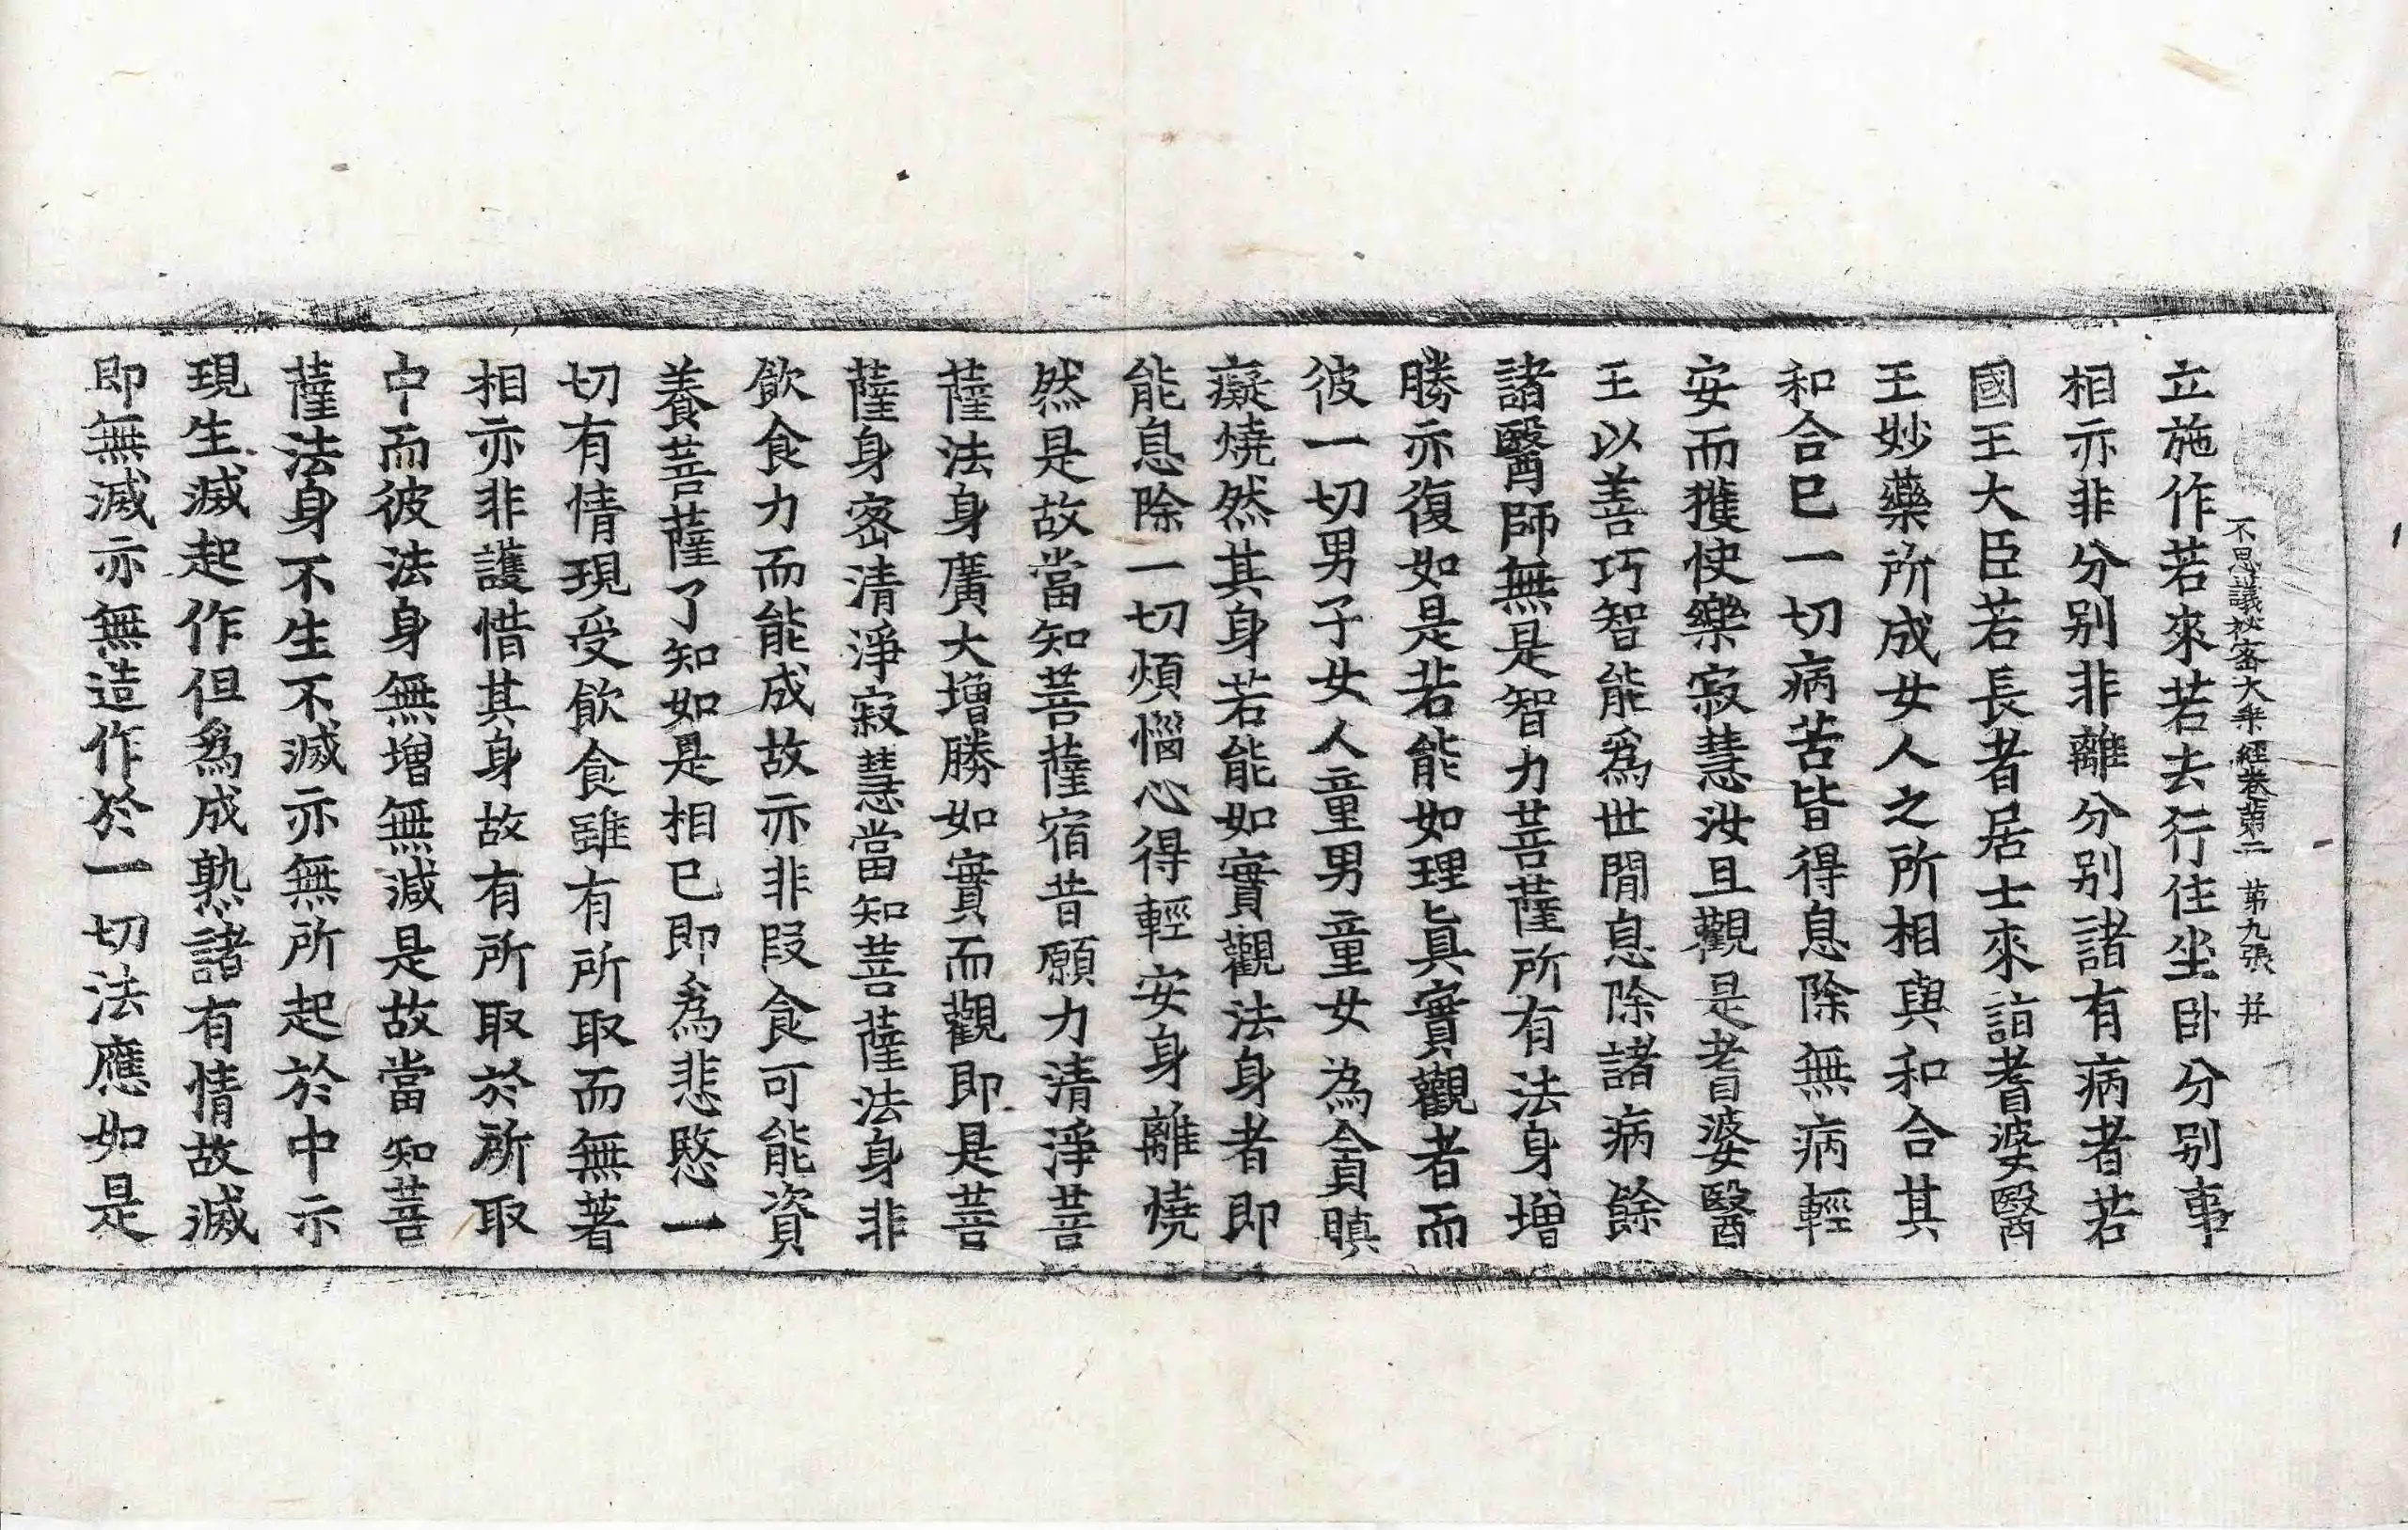 不思議秘密大乘經卷第二 第九張 并
立施作若來若去行住坐卧分别事
相亦非分别非離分别諸有病者若
國王大臣若長者居士來詣耆婆醫
王妙藥所成女人之所相與和合其
和合已一切病苦皆得息除無病輕
安而獲快樂寂慧汝且觀是耆婆醫
王以善巧智能爲世間息除諸病餘
諸醫師無是智力菩薩所有法身增
勝亦復如是若能如理真實觀者而
彼一切男子女人童男童女為貪瞋
癡燒然其身若能如實觀法身者即
能息除一切煩惱心得輕安身離燒
然是故當知菩薩宿昔願力清淨菩
薩法身廣大增勝如實而觀即是菩
薩身密清淨寂慧當知菩薩法身非
飲食力而能成故亦非段食可能資
養菩薩了知如是相已即爲悲愍一
切有情現受飲食雖有所取而無著
相亦非護惜其身故有所取於所取
中而彼法身無增無減是故當知菩
薩法身不生不滅亦無所起於中示
現生滅起作但爲成熟諸有情故滅
即無滅亦無造作於一切法應如是